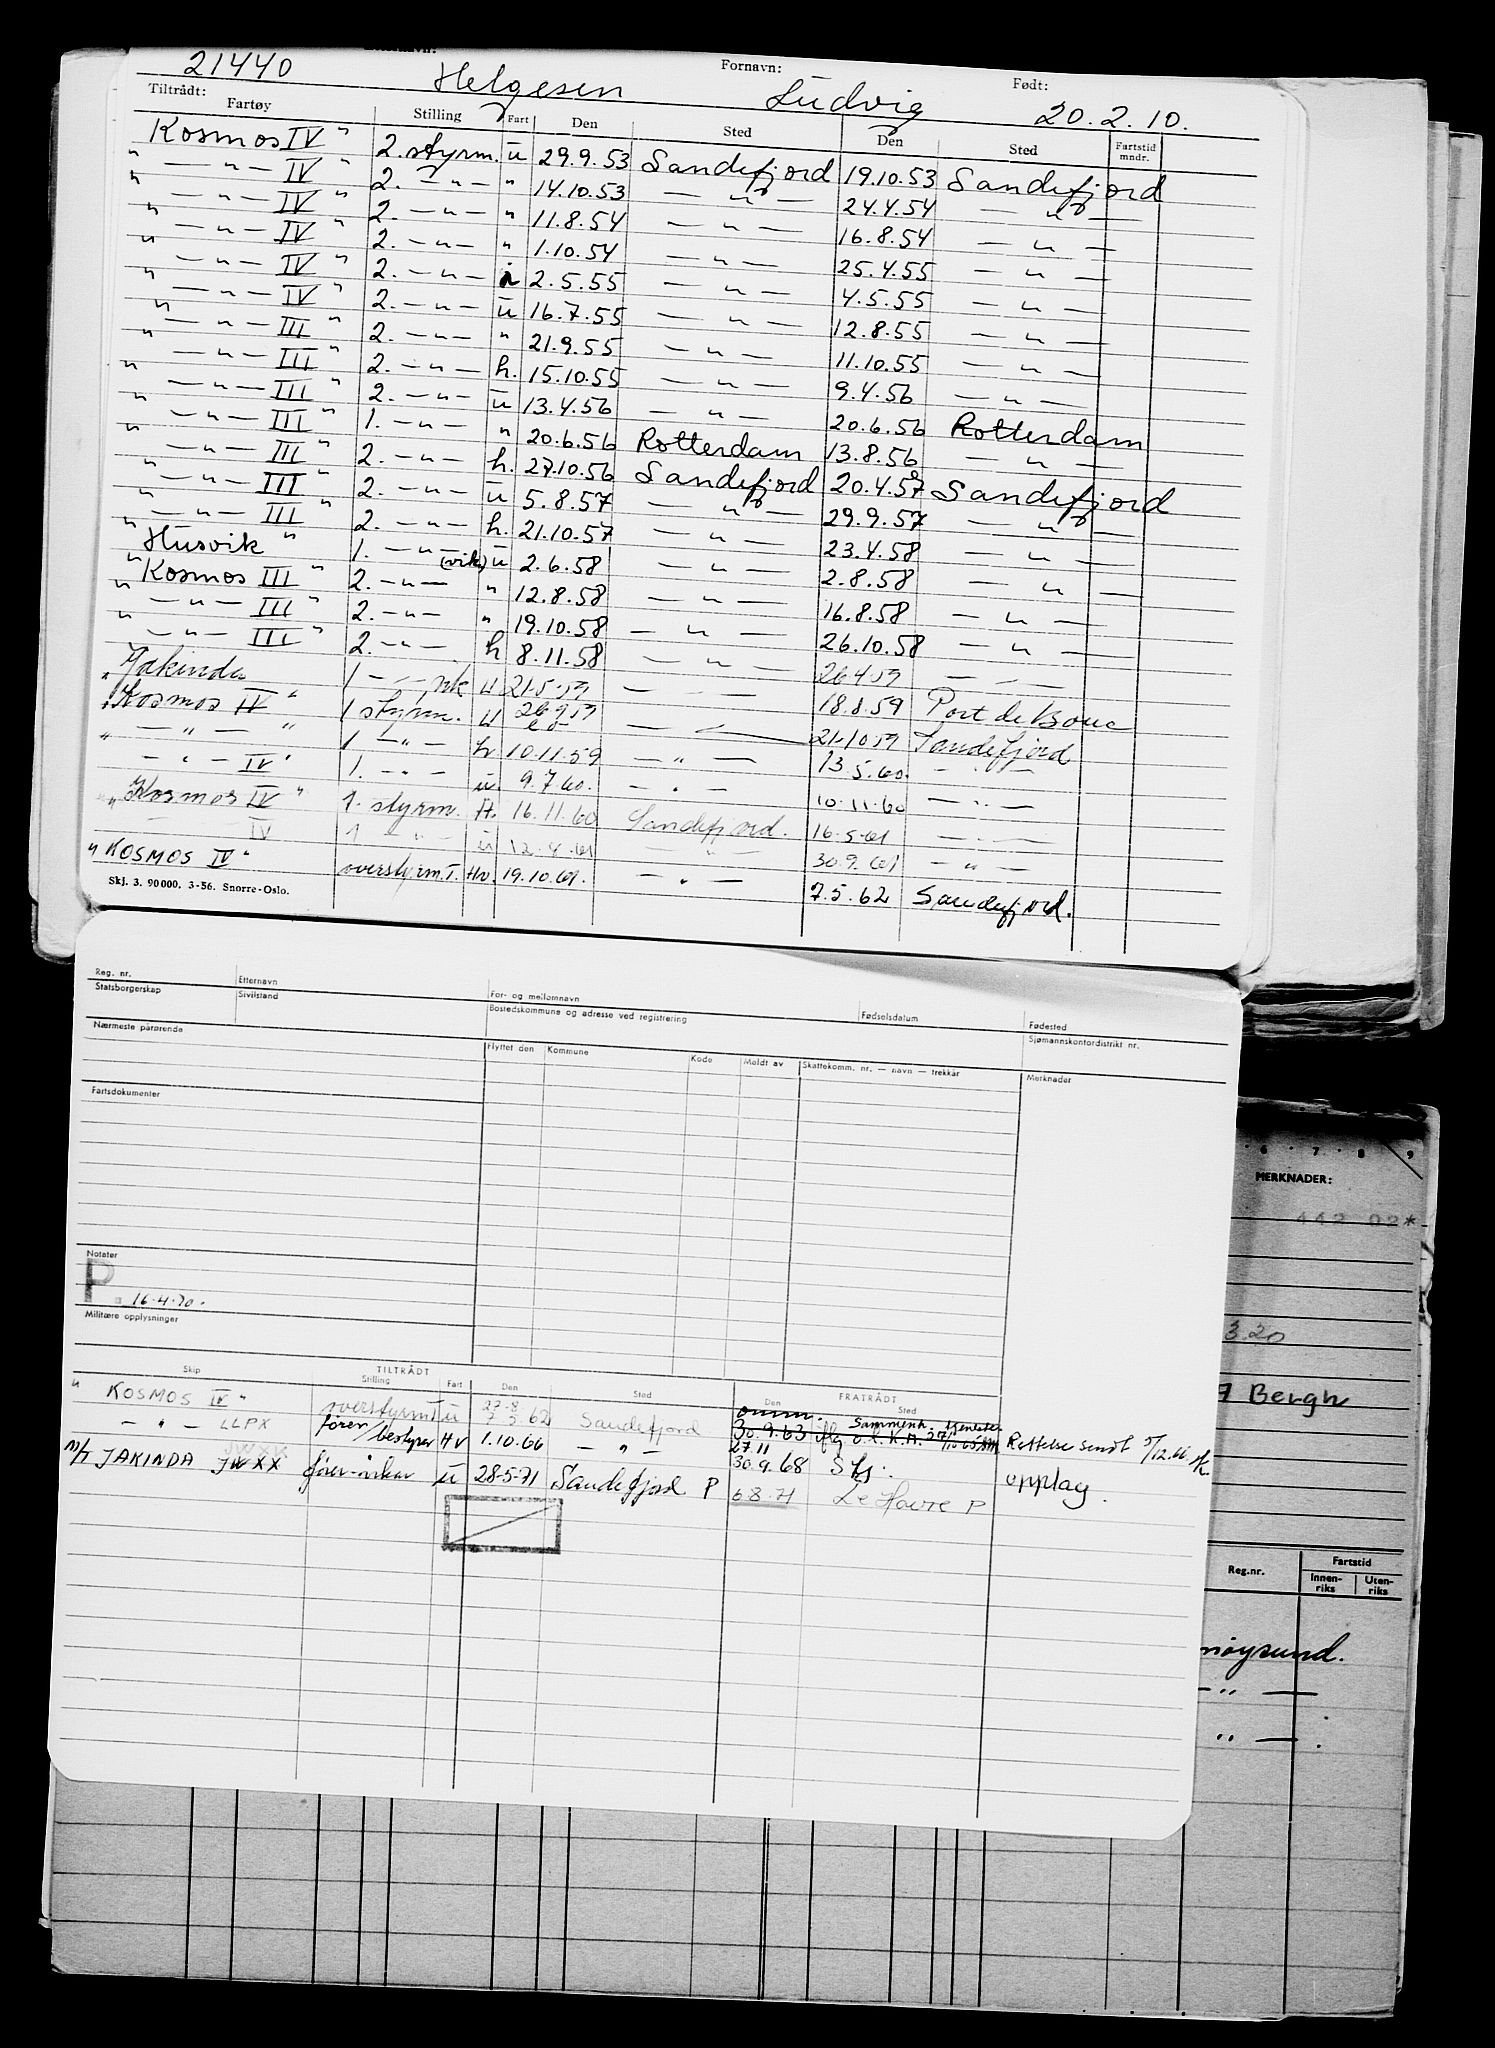 21440 Helgesen Fornavn: Ludvig Født: 20.2.10.
Tiltrådt:
Fartøy Stilling Fart Den Sted Den Sted Fartstid mndr.
" Kosmos IV " 2. styrm. ü 29.9.53 Sandefjord 19.10.53 Sandefjord
" — " — IV " 2. — " — " 14.10.53 — " — 24.4.54 — " —
" — " — IV " 2. — " — " 11.8.54 — " — 16.8.54 — " —
" — " — IV " 2. — " — " 1.10.54 — " — 25.4.55 — " —
" — " — IV " 2. — " — 2.5.55 — " — 4.5.55 — " —
" — " — IV " 2. — " — ü 16.7.55 — " — 12.8.55 — " —
" — " — III " 2. — " — " 21.9.55 — " — 11.10.55 — " —
" — " — III " 2. — " — h. 15.10.55 — " — 9.4.56 — " —
" — " — III " 2. — " — ü 13.4.56 — " — 20.6.56 Rotterdam
" — " — III " 1. — " — " 20.6.56 Rotterdam 13.8.56 — " —
" — " — III " 2. — " — h. 27.10.56 Sandefjord 20.4.57 Sandefjord
" — " — III " 2. — " — ü 5.8.57 — " — 29.9.57 — " —
" — " — III " 2. — " — h. 21.10.57 — " — 23.4.58 — " —
" Husvik " 1. — " — (vik) ü 2.6.58 — " — 2.8.58 — " —
" Kosmos III " 2. — " — " 12.8.58 — " — 16.8.58 — " —
" — " — III " 2. — " — " 19.10.58 — " — 26.10.58 — " —
" — " — III " 2. — " — h 8.11.58 — " — 26.4.59 — " —
" Jakinda 1 — " — vik ü 21.5.59 — " — 18.8.59 Port de Bouc
" Kosmos IV " 1 styrm. ü 26.9.59 — " — 21.10.59 Sandefjord
" — " — " 1 — " — h 10.11.59 — " — 13.5.60. — " —
— " — IV " 1. — " — ü. 9.7.60. — " — 10.11.60 — " —
" Kosmos IV " 1. styrm. H. 16.11.60 Sandefjord. 16.5.61 — " —
IV 1 " ü 12.4.61 — " — 30.9.61 — " —
" KOSMOS IV " overstyrm.I. Hv. 19.10.61. — " — 7.5.62 Sandefjord.
Skj. 3. 90 000. 3-56. Snorre-Oslo.
Reg. nr. Etternavn For- og mellomnavn Fødselsdatum Fødested
Statsborgerskap Sivilstand Bostedskommune og adresse ved registrering Sjømannskontordistrikt nr.
Nærmeste pårørende Flyttet den Kommune Kode Meldt av Skattekomm. nr. — navn — trekkår Merknader
Fartsdokumenter
Notater
P. 16.4.70.
Militære opplysninger
TILTRÅDT FRATRÅDT
Skip Stilling Fart Den Sted Den Sted
" KOSMOS IV " overstyrm I ü 27.8. 7.5.62 Sandefjord omm. 30.9.63 iflg Sammenh. tjeneste
— " — LLPX fører/bestyrer Hv 1.10.66 — " — 27.11 30.9.68 Sfj. Rettelse sendt 5/12.66.
M/T JAKINDA JWXX fører ü 28.5.71 Sandefjord P 6.8.71 Le Havre P opplag.
6 · 7 · 8 · 9
MERKNADER:
442 02*
3.20
7 Bergh
Reg.nr. Fartstid
Innen-riks Uten-riks
møysund.
— " —
" — .